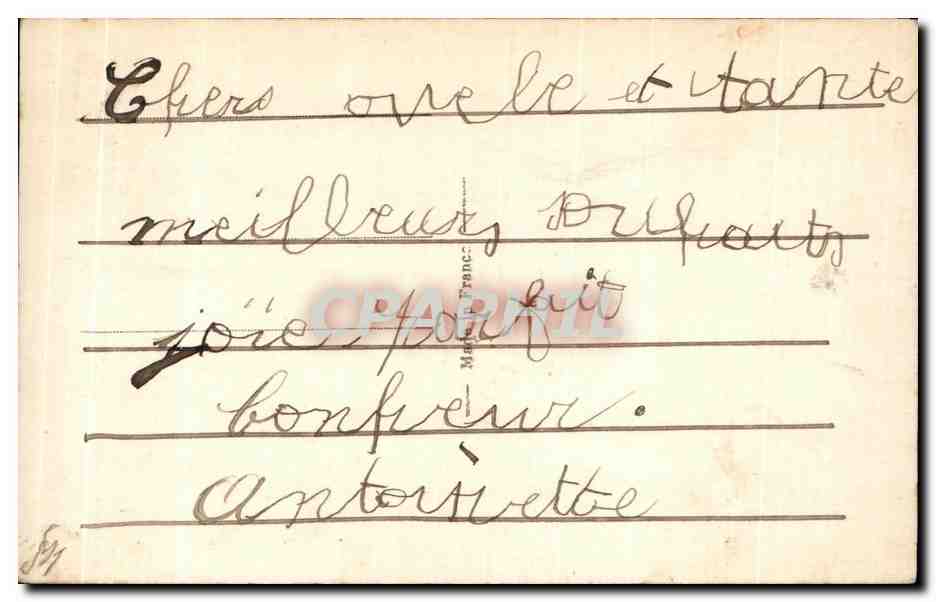 Chers oncle et tante
meilleurs souhaits
joie parfait
bonheur.
Antoinette
Made in France
CPARHIL